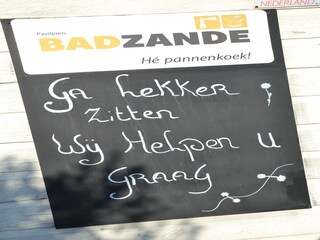 NEDERLAND
Paviljoen
BADZANDE
Hé pannenkoek!
Ga Lekker
Zitten
Wij Helpen u
graag